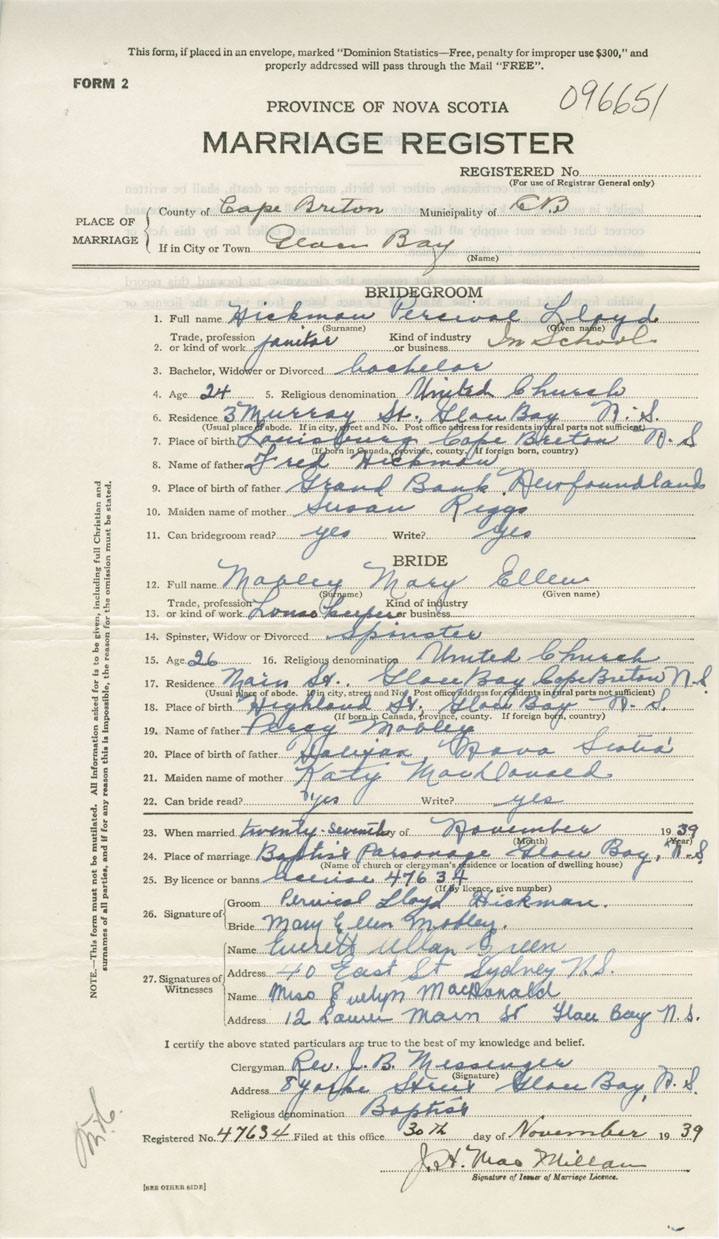 This form, if placed in an envelope, marked "Dominion Statistics—Free, penalty for improper use $300," and
properly addressed will pass through the Mail "FREE".
FORM 2
096651
PROVINCE OF NOVA SCOTIA
MARRIAGE REGISTER
REGISTERED No.
(For use of Registrar General only)
PLACE OF MARRIAGE
County of Cape Breton Municipality of C.B
If in City or Town Glace Bay
(Name)
BRIDEGROOM
1. Full name Hickman Percival Lloyd
(Surname) (Given name)
2. Trade, profession or kind of work janitor Kind of industry or business In School
3. Bachelor, Widower or Divorced bachelor
4. Age 24 5. Religious denomination United Church
6. Residence 3 Murray St. Glace Bay N.S.
(Usual place of abode. If in city, street and No. Post office address for residents in rural parts not sufficient)
7. Place of birth Louisburg Cape Breton N.S
(If born in Canada, province, county. If foreign born, country)
8. Name of father Fred Hickman
9. Place of birth of father Grand Bank Newfoundland
10. Maiden name of mother Susan Riggs
11. Can bridegroom read? yes Write? yes
BRIDE
12. Full name Mobley Mary Ellen
(Surname) (Given name)
13. Trade, profession or kind of work House Keeper Kind of industry or business
14. Spinster, Widow or Divorced Spinster
15. Age 26 16. Religious denomination United Church
17. Residence Main St. Glace Bay Cape Breton N.S.
(Usual place of abode. If in city, street and No. Post office address for residents in rural parts not sufficient)
18. Place of birth Highland St. Glace Bay N.S.
(If born in Canada, province, county. If foreign born, country)
19. Name of father Percy Mobley
20. Place of birth of father Halifax Nova Scotia
21. Maiden name of mother Katy MacDonald
22. Can bride read? yes Write? yes
23. When married twenty-seventh day of November 1939
(Month) (Year)
24. Place of marriage Baptist Parsonage Glace Bay, N.S
(Name of church or clergyman's residence or location of dwelling house)
25. By licence or banns license 47634
(If by licence, give number)
26. Signature of
Groom Percival Lloyd Hickman.
Bride Mary Ellen Mobley.
27. Signatures of Witnesses
Name Everett Allan Green
Address 40 East St Sydney N.S.
Name Miss Evelyn MacDonald
Address 12 Lower Main St Glace Bay N.S.
I certify the above stated particulars are true to the best of my knowledge and belief.
Clergyman Rev. J. B. Messenger
(Signature)
Address 8 Yorke Street Glace Bay, N.S.
Religious denomination Baptist
Registered No. 47634 Filed at this office 30th day of November 1939
J. H. MacMillan
Signature of Issuer of Marriage Licence.
[SEE OTHER SIDE]
NOTE.—This form must not be mutilated. All information asked for is to be given, including full Christian and
surnames of all parties, and if for any reason this is impossible, the reason for the omission must be stated.